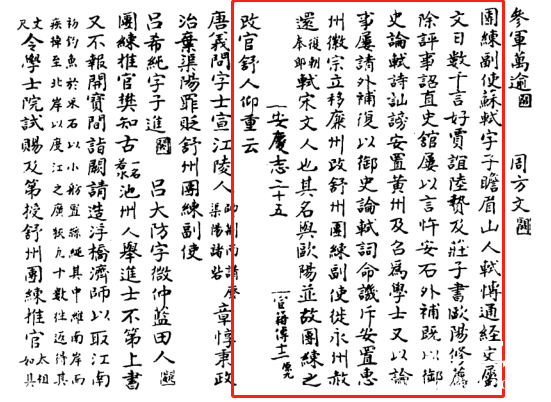 參軍萬逾闕 周方文闕
團練副使蘇軾字子瞻眉山人軾博通經史屬
文日數千言好賈誼陸贄及莊子書歐陽修薦
除評事詔直史館屢以言忤安石外補既以御
史論軾詩訕謗安置黃州及召為學士又以論
事屢請外補復以御史論軾詞命譏斥安置惠
州徽宗立移廉州改舒州團練副使徙永州赦
還復朝奉郎軾宋文人也其名與歐陽並故團練之
安慶志二十五
改官舒人仰重云
唐義問字士宣江陵人帥荆南請廢渠陽諸砦章惇秉政
治棄渠陽罪貶舒州團練副使
呂希純字子進闕 呂大防字微仲藍田人闕
團練推官樊知古一名若水池州人舉進士不第上書
又不報開寶間詣闕請造浮橋濟師以取江南
初釣魚於采石以小舫置絲繩其中維南岸而
疾棹至北岸以度江之廣狹凡十數往返得其
丈尺太祖令學士院試賜及第授舒州團練推官如其